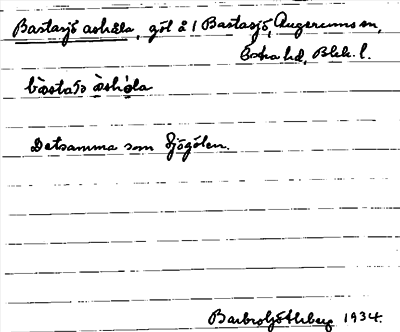 Bastasjö askåla, göl å 1 Bastasjö, Augerums sn,
Östra hd, Blek. l.
bàstaʃö àskåla
Detsamma som Sjögölen.
Barbro Götherberg 1934.